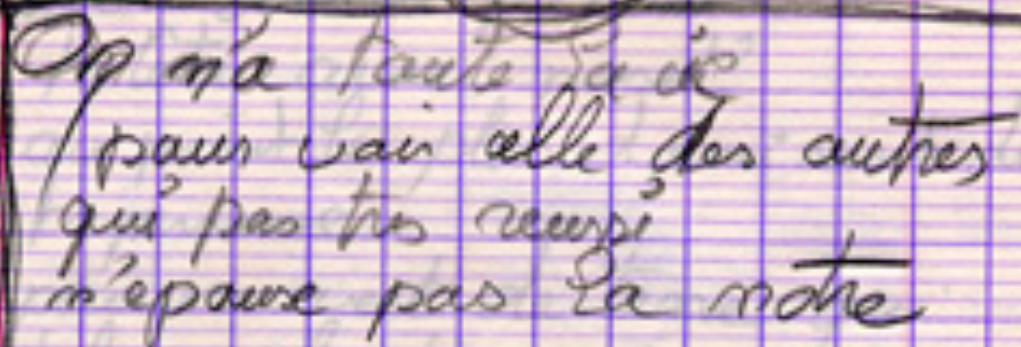 On n'a toute la vie
pour voir celle des autres
qui pas très reussi
n'épouse pas la notre